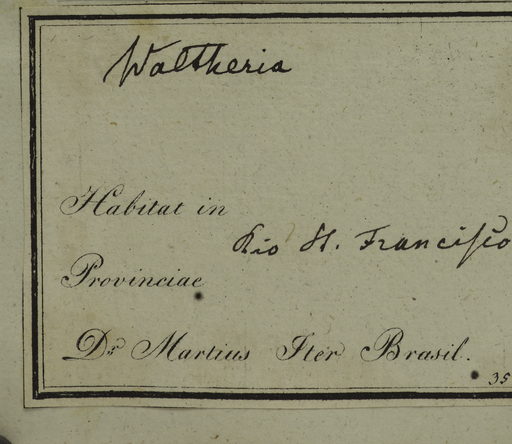 Waltheria
Habitat in
Rio St. Francisco
Provinciae
Dr Martius Iter Brasil.
35